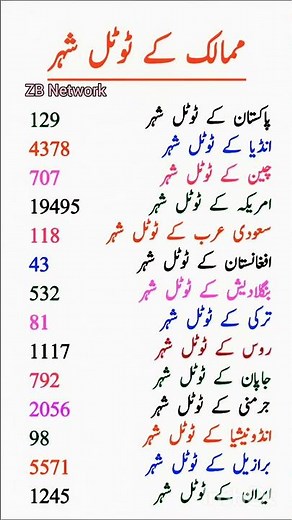 ممالک کے ٹوٹل شہر
ZB Network
پاکستان کے ٹوٹل شہر 129
انڈیا کے ٹوٹل شہر 4378
چین کے ٹوٹل شہر 707
امریکہ کے ٹوٹل شہر 19495
سعودی عرب کے ٹوٹل شہر 118
افغانستان کے ٹوٹل شہر 43
بنگلادیش کے ٹوٹل شہر 532
ترکی کے ٹوٹل شہر 81
روس کے ٹوٹل شہر 1117
جاپان کے ٹوٹل شہر 792
جرمنی کے ٹوٹل شہر 2056
انڈونیشیا کے ٹوٹل شہر 98
برازیل کے ٹوٹل شہر 5571
ایران کے ٹوٹل شہر 1245